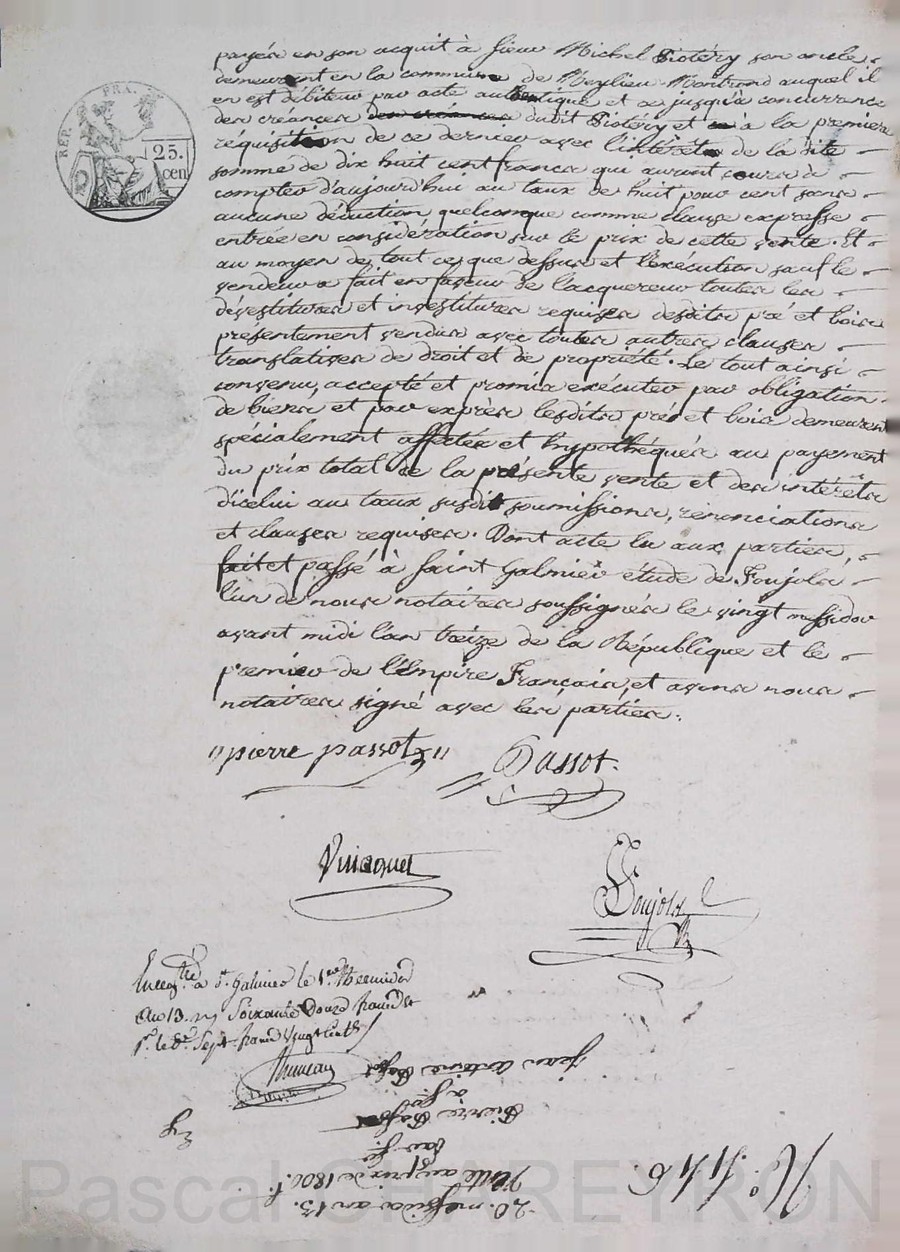 payés en son acquit à sieur Michel Siotéry son oncle
demeurant en la commune de Meylieu Montrond auquel il
en est débiteur par acte authentique et ce jusqu'à concurrance
des créances des créances dudit Siotéry et à la premiere
réquisition de ce dernier avec l'intérêts de la dite
somme de dix huit cent francs qui auront cours à
compter d'aujourd'hui au taux de huit pour cent sans
aucune déduction quelconque comme clause expresse
entrée en considération sur le prix de cette vente. Et
au moyen de tout ce que dessus et l'exécution sauf le
vendeur a fait en faveur de l'acquereur toutes les
dévestitures et investitures requises desdits pré et bois
présentement vendus avec toutes autres clauses
translatives de droit et de propriété. Le tout ainsi
convenu, accepté et promis exécuter par obligation
de biens, et par exprès lesdits prés et bois demeurent
spécialement affectés et hypothéqués au payement
du prix total de la présente vente et des intérêts
d'icelui au taux susdit soumissions, renonciations
et clauses requises. Dont acte lu aux parties,
fait et passé à Saint Galmier étude de Foujols
l'un de nous notaires soussignés le vingt messidor
avant midi l'an treize de la République et le
premier de l'Empire Français, et avons nous
notaires signé avec les parties.
pierre passot
Passot.
Foujols
REP. FRA.
25.
cen
à St. Galmier le 1er. Thermidor
an 13. Soixante Douze francs et
Sept francs vingt cent
jean antoine Passot
à
Pierre Passot
par
Vente au prix de 1800. f.
20. messidor an 13.
No. 1146.
Pascal CHAREYRON